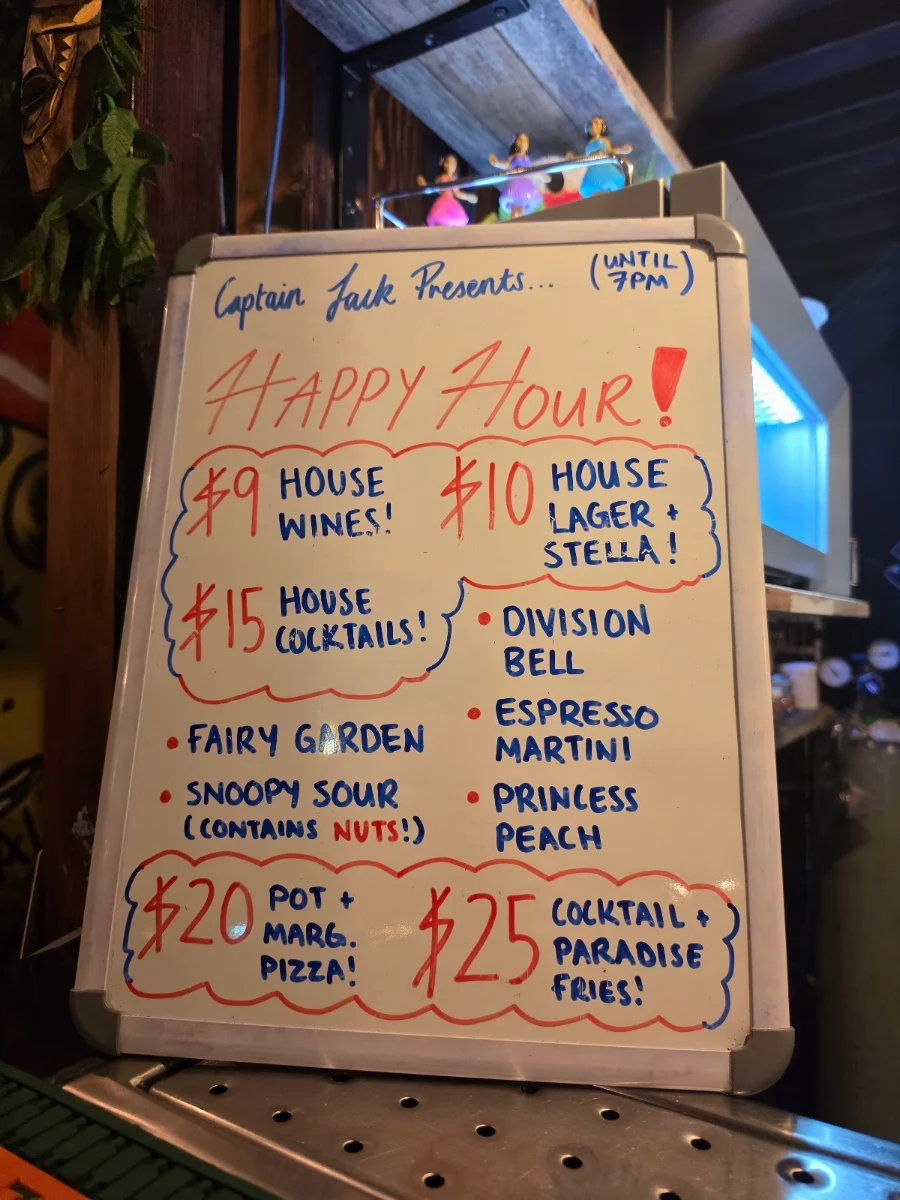 Captain Jack Presents...
(UNTIL
7PM)
HAPPY HOUR!
$9 HOUSE
WINES!
$10 HOUSE
LAGER +
STELLA!
$15 HOUSE
COCKTAILS!
• FAIRY GARDEN
• SNOOPY SOUR
(CONTAINS NUTS!)
• DIVISION
BELL
• ESPRESSO
MARTINI
• PRINCESS
PEACH
$20 POT +
MARG.
PIZZA!
$25 COCKTAIL +
PARADISE
FRIES!